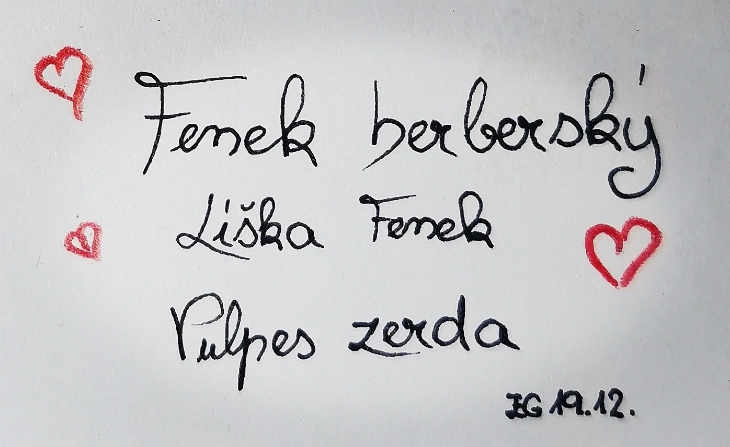 Fenek berberský
Liška Fenek
Vulpes zerda
EG 19.12.